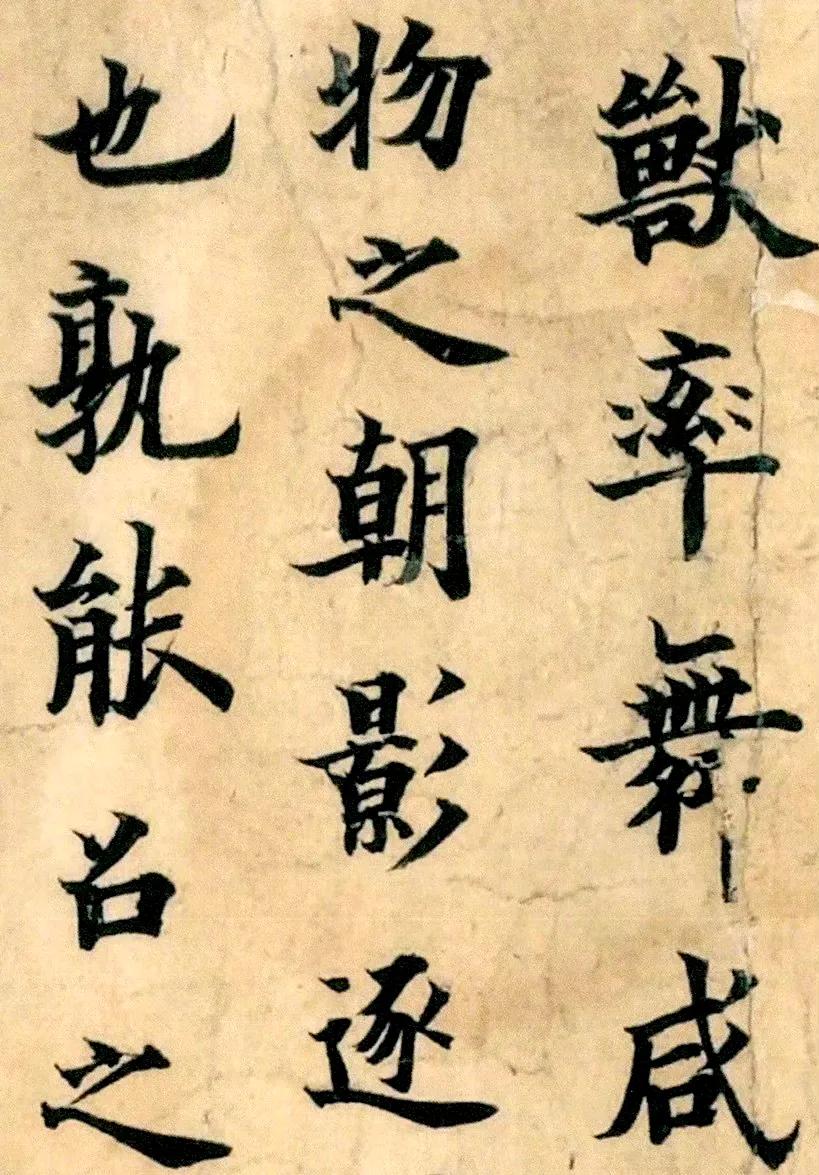 獸率舞咸
物之朝影逐
也孰能名之